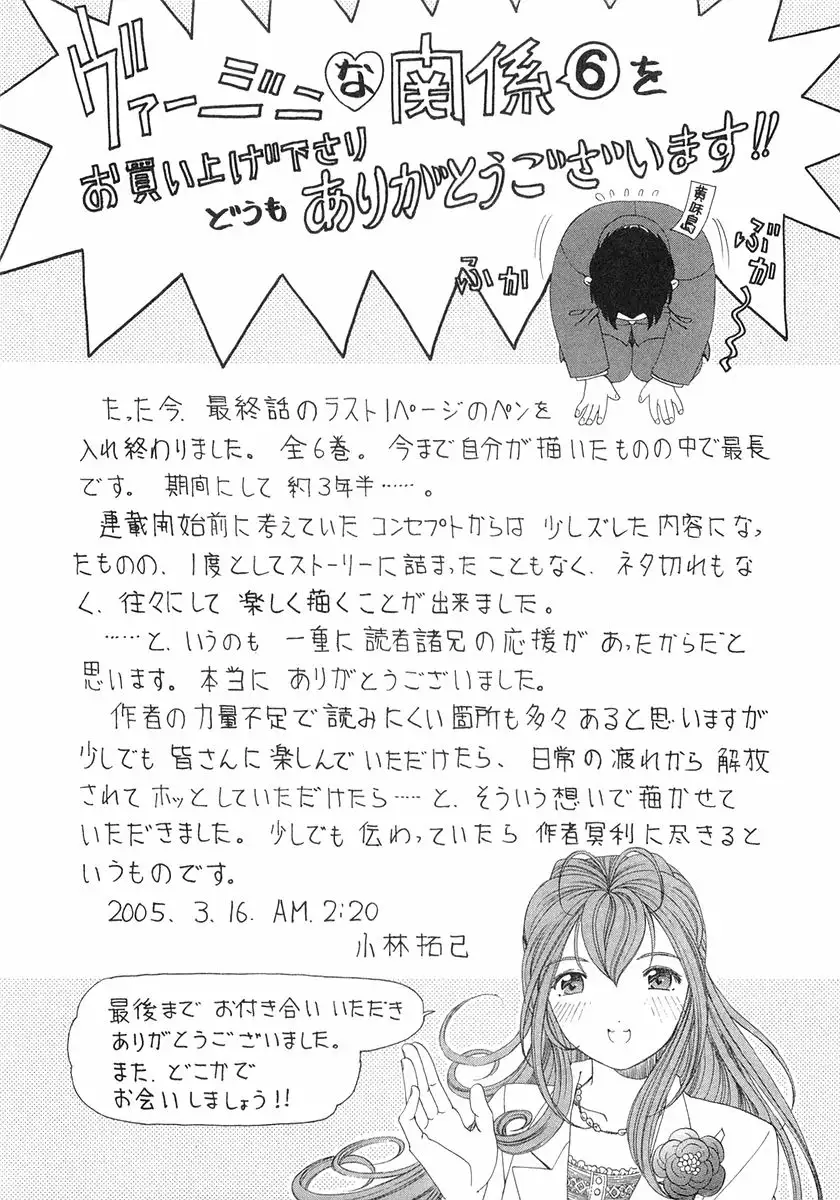 ヴァージンな関係⑥を
お買い上げ下さり
どうもありがとうございます!!
黄味島
ふか
ぶか
たった今、最終話のラスト1ページのペンを
入れ終わりました。全6巻。今まで自分が描いたものの中で最長
です。期間にして約3年半……。
連載開始前に考えていたコンセプトからは少しズレた内容になっ
たものの、1度としてストーリーに詰まったこともなく、ネタ切れもな
く、往々にして楽しく描くことが出来ました。
……と、いうのも一重に読者諸兄の応援があったからだと
思います。本当にありがとうございました。
作者の力量不足で読みにくい箇所も多々あると思いますが
少しでも皆さんに楽しんでいただけたら、日常の疲れから解放
されてホッとしていただけたら……と、そういう想いで描かせて
いただきました。少しでも伝わっていたら作者冥利に尽きると
いうものです。
2005. 3. 16. AM. 2:20
小林拓己
最後までお付き合いいただき
ありがとうございました。
また、どこかで
お会いしましょう!!